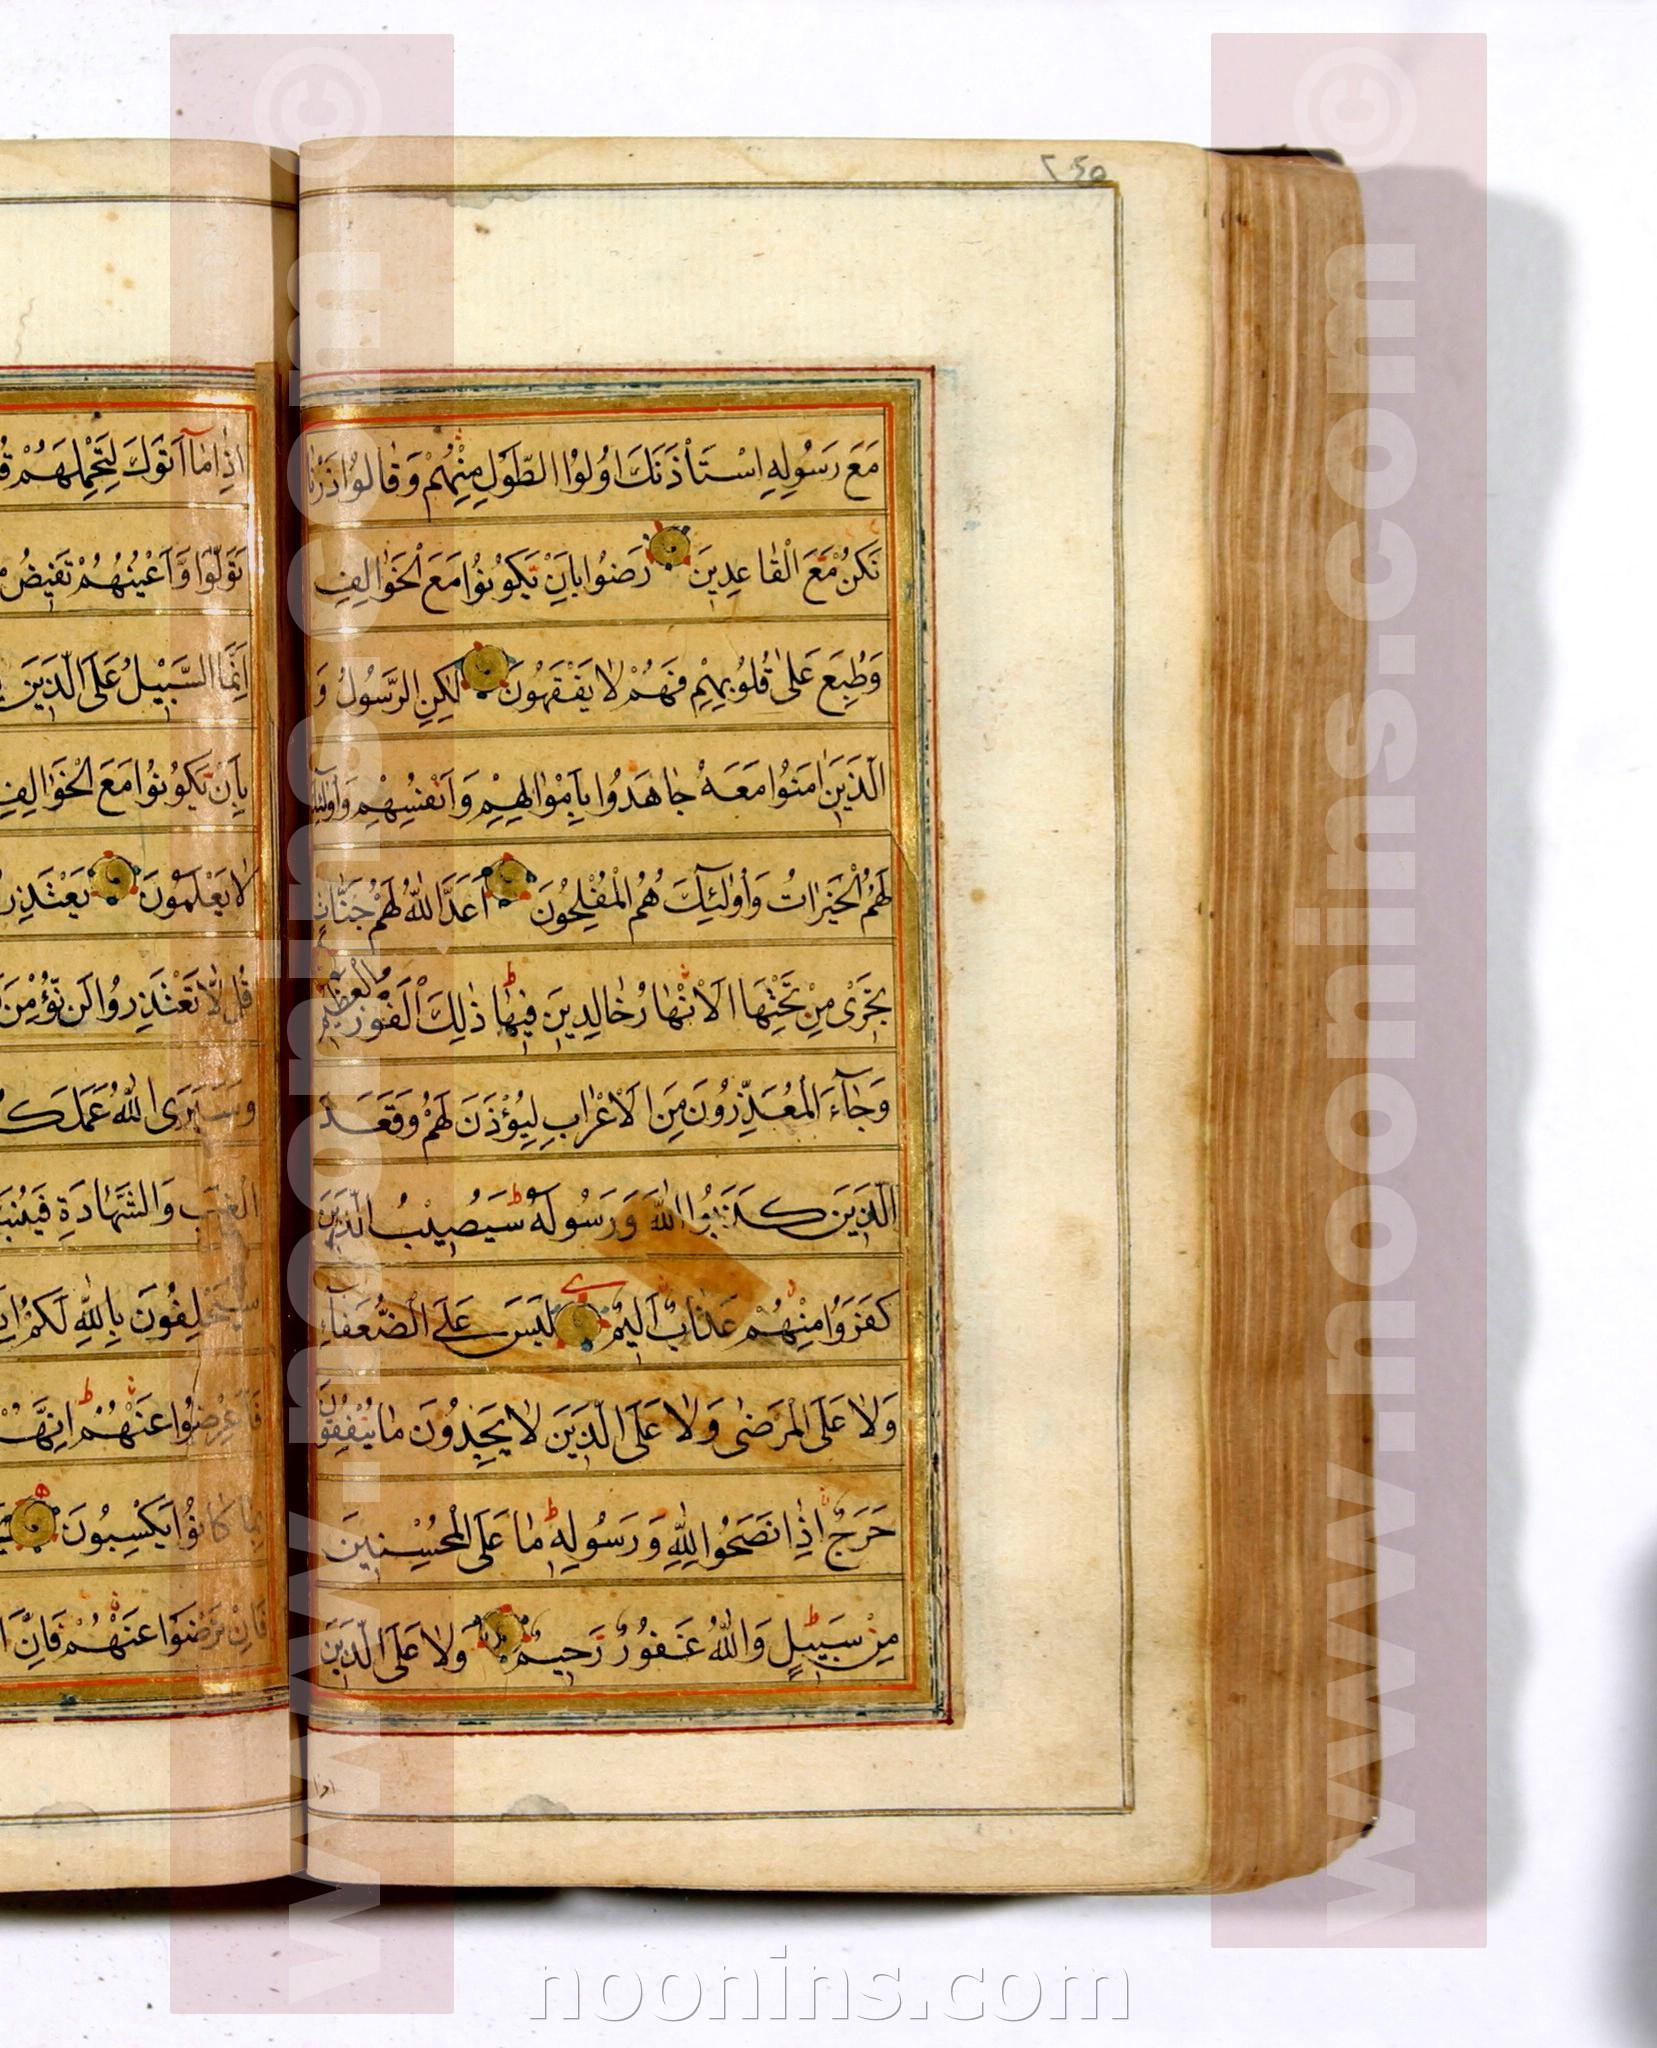 ٢٤٥
مَعَ رَسُولِهِ اسْتَأْذَنَكَ اُولُوا الطَّوْلِ مِنْهُمْ وَقَالُوا ذَرْنَا
نَكُنْ مَعَ الْقَاعِدِينَ رَضُوا بِاَنْ يَكُونُوا مَعَ الْخَوَالِفِ
وَطُبِعَ عَلَى قُلُوبِهِمْ فَهُمْ لَا يَفْقَهُونَ لَكِنِ الرَّسُولُ وَ
الَّذِينَ امَنُوا مَعَهُ جَاهَدُوا بِاَمْوَالِهِمْ وَاَنْفُسِهِمْ وَاُولَئِكَ
لَهُمُ الْخَيْرَاتُ وَاُولَئِكَ هُمُ الْمُفْلِحُونَ اَعَدَّ اللَّهُ لَهُمْ جَنَّاتٍ
تَجْرِى مِنْ تَحْتِهَا الْاَنْهَارُ خَالِدِينَ فِيهَا ذَلِكَ الْفَوْزُ الْعَظِيمُ
وَجَآءَ الْمُعَذِّرُونَ مِنَ الْاَعْرَابِ لِيُؤْذَنَ لَهُمْ وَقَعَدَ
الَّذِينَ كَذَبُوا اللَّهَ وَرَسُولَهُ سَيُصِيبُ الَّذِينَ
كَفَرُوا مِنْهُمْ عَذَابٌ اَلِيمٌ لَيْسَ عَلَى الضُّعَفَآءِ
وَلَا عَلَى الْمَرْضَى وَلَا عَلَى الَّذِينَ لَا يَجِدُونَ مَا يُنْفِقُونَ
حَرَجٌ اِذَا نَصَحُوا لِلَّهِ وَرَسُولِهِ مَا عَلَى الْمُحْسِنِينَ
مِنْ سَبِيلٍ وَاللَّهُ غَفُورٌ رَحِيمٌ وَلَا عَلَى الَّذِينَ
اذا
اِذَا مَآ اَتَوْكَ لِتَحْمِلَهُمْ
تَوَلَّوْا وَاَعْيُنُهُمْ تَفِيضُ
اِنَّمَا السَّبِيلُ عَلَى الَّذِينَ
بِاَنْ يَكُونُوا مَعَ الْخَوَالِفِ
لَا يَعْلَمُونَ يَعْتَذِرُ
قُلْ لَا تَعْتَذِرُوا لَنْ نُؤْمِنَ
وَسَيَرَى اللَّهُ عَمَلَكُ
الْغَيْبِ وَالشَّهَادَةِ فَيُنَبِّ
سَيَحْلِفُونَ بِاللَّهِ لَكُمْ
فَاَعْرِضُوا عَنْهُمْ اِنَّهُمْ
بِمَا كَانُوا يَكْسِبُونَ
فَاِنْ تَرْضَوْا عَنْهُمْ فَاِنَّ
www.noonins.com ©
www.noonins.com ©
noonins.com